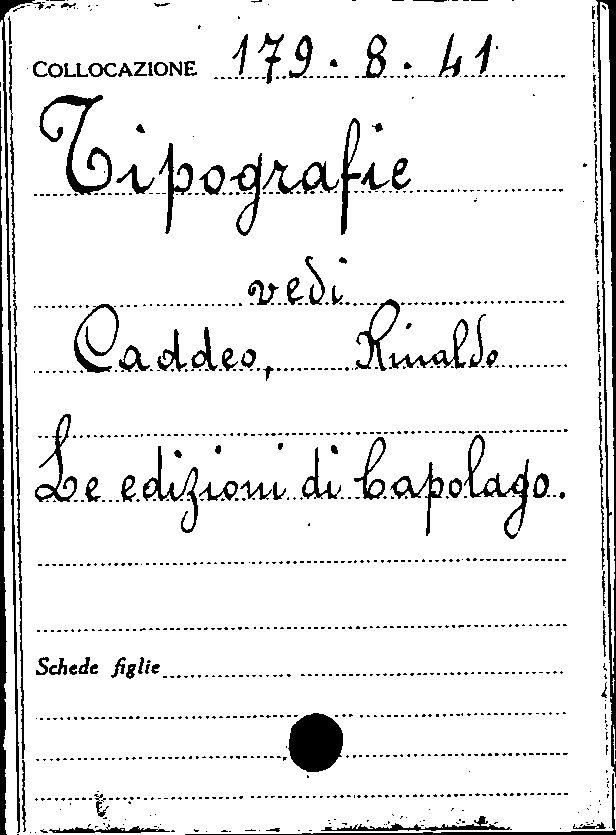 COLLOCAZIONE 179.8.41
Tipografie
vedi
Caddeo, Rinaldo
Le edizioni di Capolago.
Schede figlie